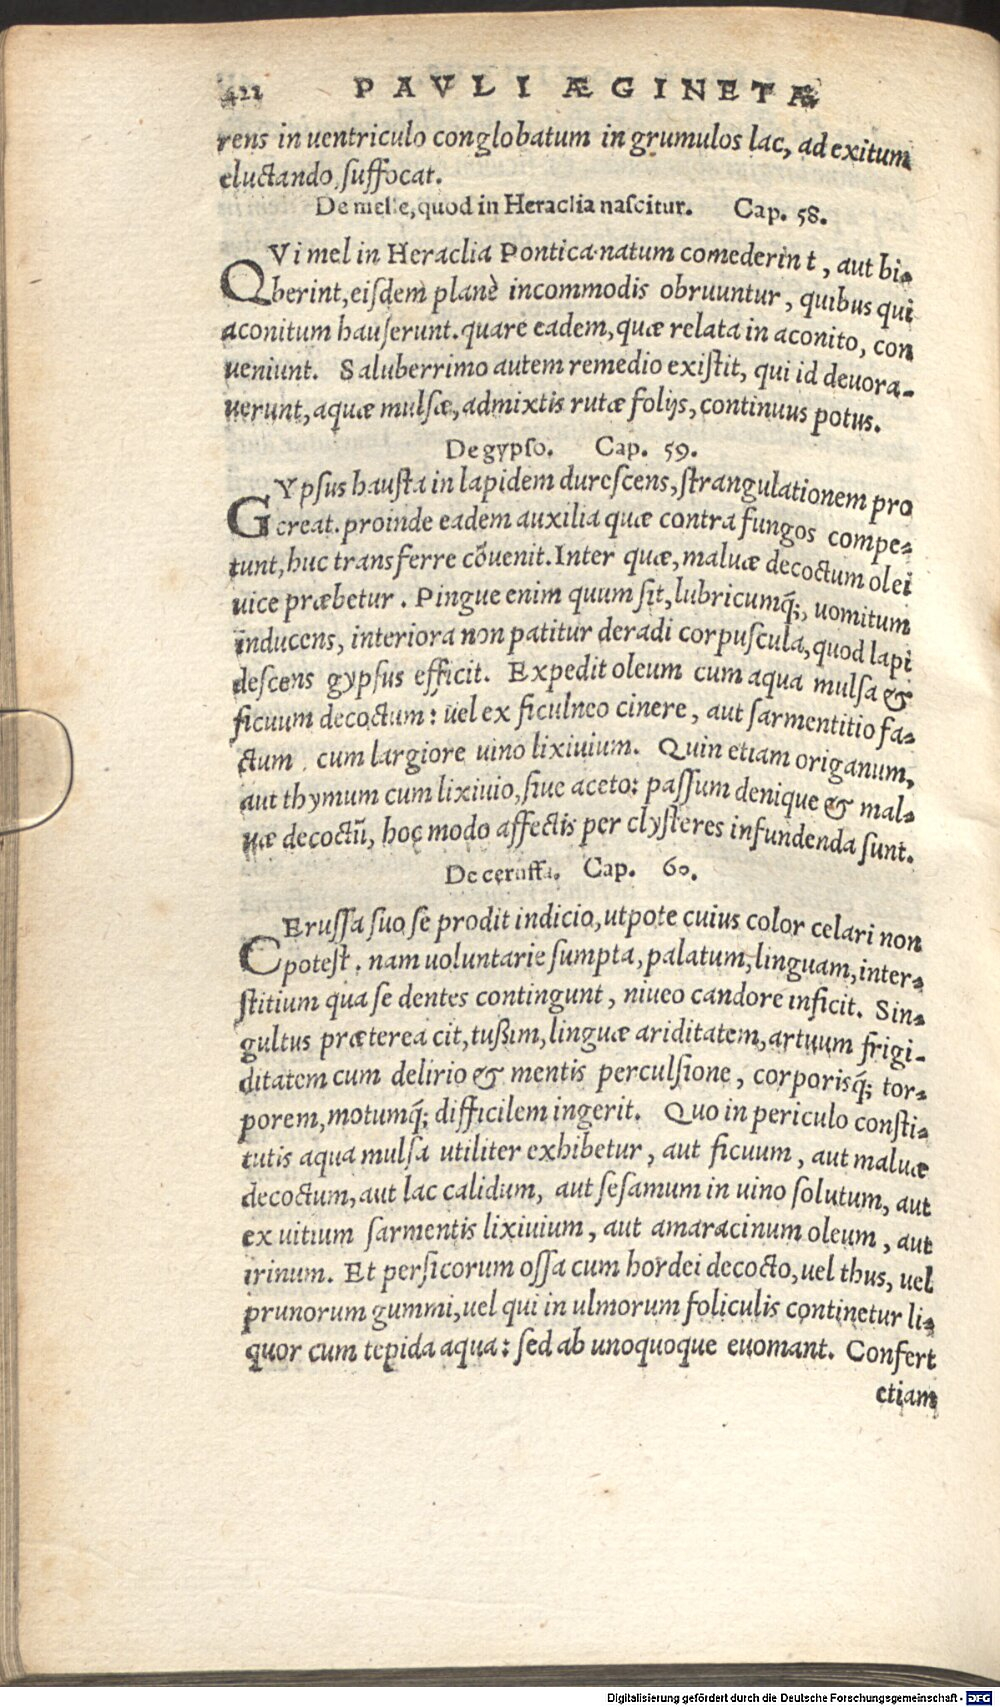 422 PAVLI ÆGINETÆ
rens in uentriculo conglobatum in grumulos lac, ad exitum
eluctando, suffocat.
De melle, quod in Heraclia nascitur. Cap. 58.
QVi mel in Heraclia Pontica natum comederint, aut bi-
berint, eisdem planè incommodis obruuntur, quibus qui
aconitum hauserunt. quare eadem, quæ relata in aconito, con
ueniunt. Saluberrimo autem remedio existit, qui id deuora-
uerunt, aquæ mulsæ, admixtis rutæ folijs, continuus potus.
De gypso. Cap. 59.
GYpsus hausta in lapidem durescens, strangulationem pro
creat. proinde eadem auxilia quæ contra fungos compe-
tunt, huc transferre cõuenit. Inter quæ, maluæ decoctum olei
uice præbetur. Pingue enim quum sit, lubricumq́;, uomitum
inducens, interiora non patitur deradi corpuscula, quod lapi
descens gypsus efficit. Expedit oleum cum aqua mulsa &
ficuum decoctum: uel ex ficulneo cinere, aut sarmentitio fa-
ctum cum largiore uino lixiuium. Quin etiam origanum,
aut thymum cum lixiuio, siue aceto: passum denique & mal-
uæ decoctũ, hoc modo affectis per clysteres infundenda sunt.
De cerussa. Cap. 60.
CErussa suo se prodit indicio, utpote cuius color celari non
potest. nam uoluntarie sumpta, palatum, linguam, inter-
stitium qua se dentes contingunt, niueo candore inficit. Sin-
gultus præterea cit, tußim, linguæ ariditatem, artuum frigi-
ditatem cum delirio & mentis perculsione, corporisq́; tor-
porem, motumq́; difficilem ingerit. Quo in periculo consti-
tutis aqua mulsa utiliter exhibetur, aut ficuum, aut maluæ
decoctum, aut lac calidum, aut sesamum in uino solutum, aut
ex uitium sarmentis lixiuium, aut amaracinum oleum, aut
irinum. Et persicorum ossa cum hordei decocto, uel thus, uel
prunorum gummi, uel qui in ulmorum foliculis continetur li-
quor cum tepida aqua: sed ab unoquoque euomant. Confert
etiam
Digitalisierung gefördert durch die Deutsche Forschungsgemeinschaft - DFG